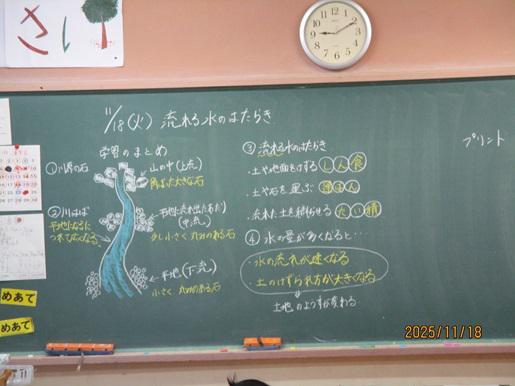 さい
11/18(火) 流れる水のはたらき
学習のまとめ
①川原の石
山の中(上流)
角ばった大きな石
②川はば
平地になるに
つれて広くなる
平地に流れ出たあたり
(中流)
少し小さく 丸みのある石
平地(下流)
小さく 丸みのある石
③流れる水のはたらき
・土や地面をけずる しん食
・土や石を運ぶ 運ぱん
・流れた土を積もらせる たい積
④水の量が多くなると…
・水の流れが速くなる
・土のけずられ方が大きくなる
土地のようすが変わる
プリント
めあて
めあて
2025/11/18